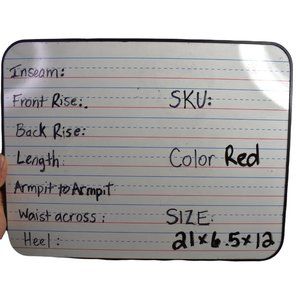 Inseam:
Front Rise: SKU:
Back Rise:
Length: Color Red
Armpit to Armpit
Waist across: SIZE:
Heel: 21x6.5x12